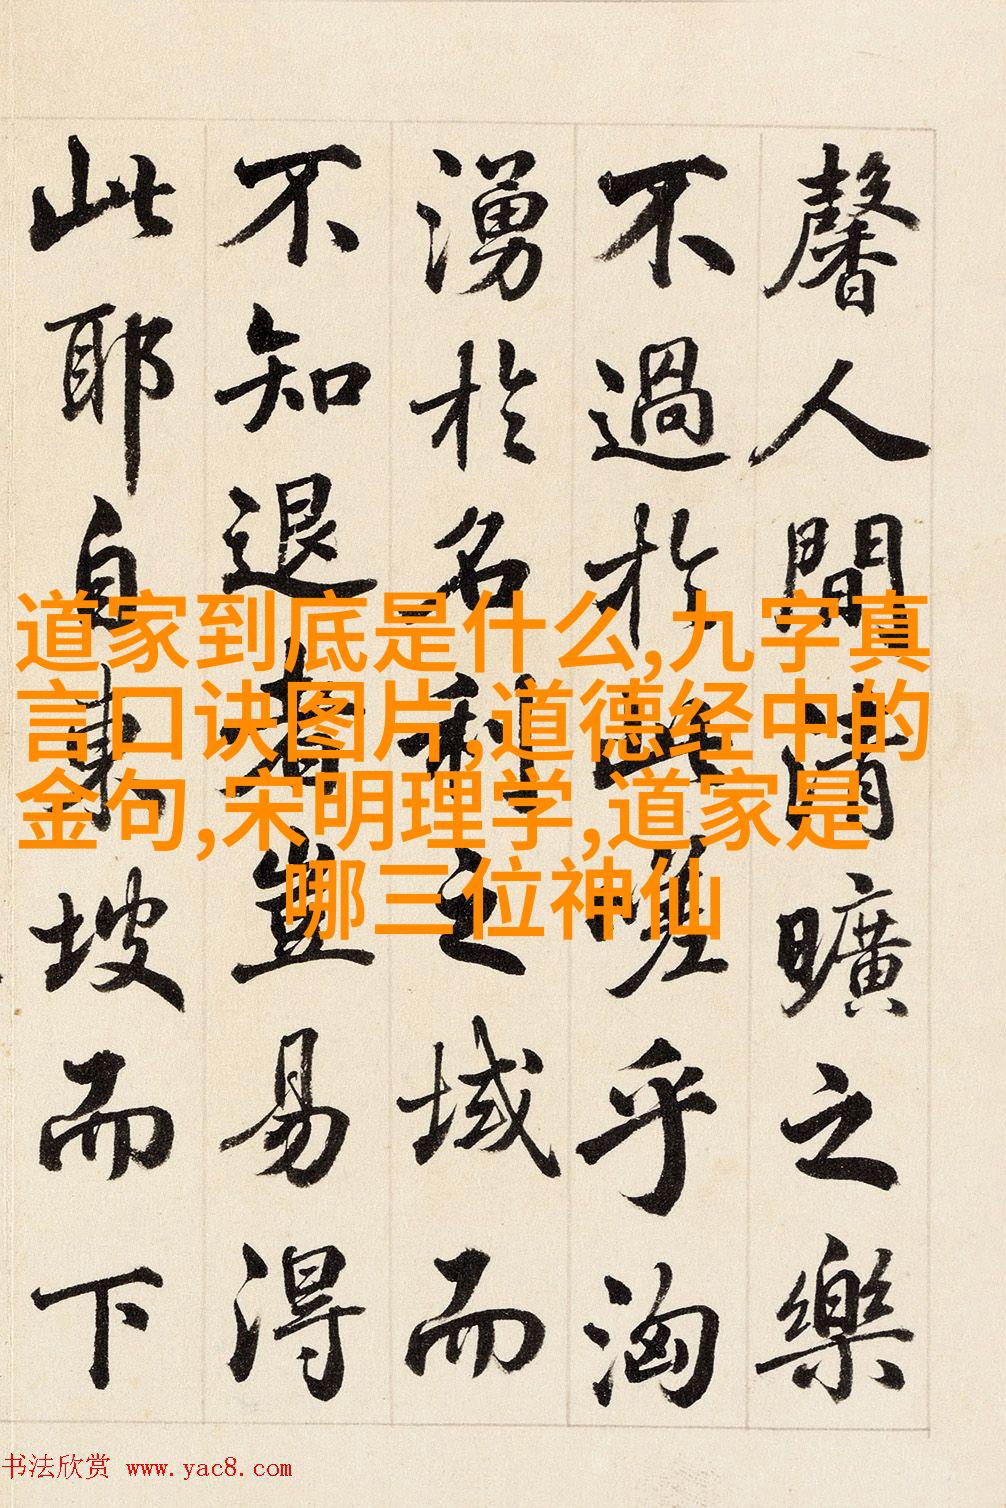 馨人間清曠之樂
不過於此嗟乎洶
湧於名利之域而
不知退者豈易得
此耶自東坡而下
道家到底是什么,九字真
言口诀图片,道德经中的
金句,宋明理学,道家是
哪三位神仙
书法欣赏 www.yac8.com